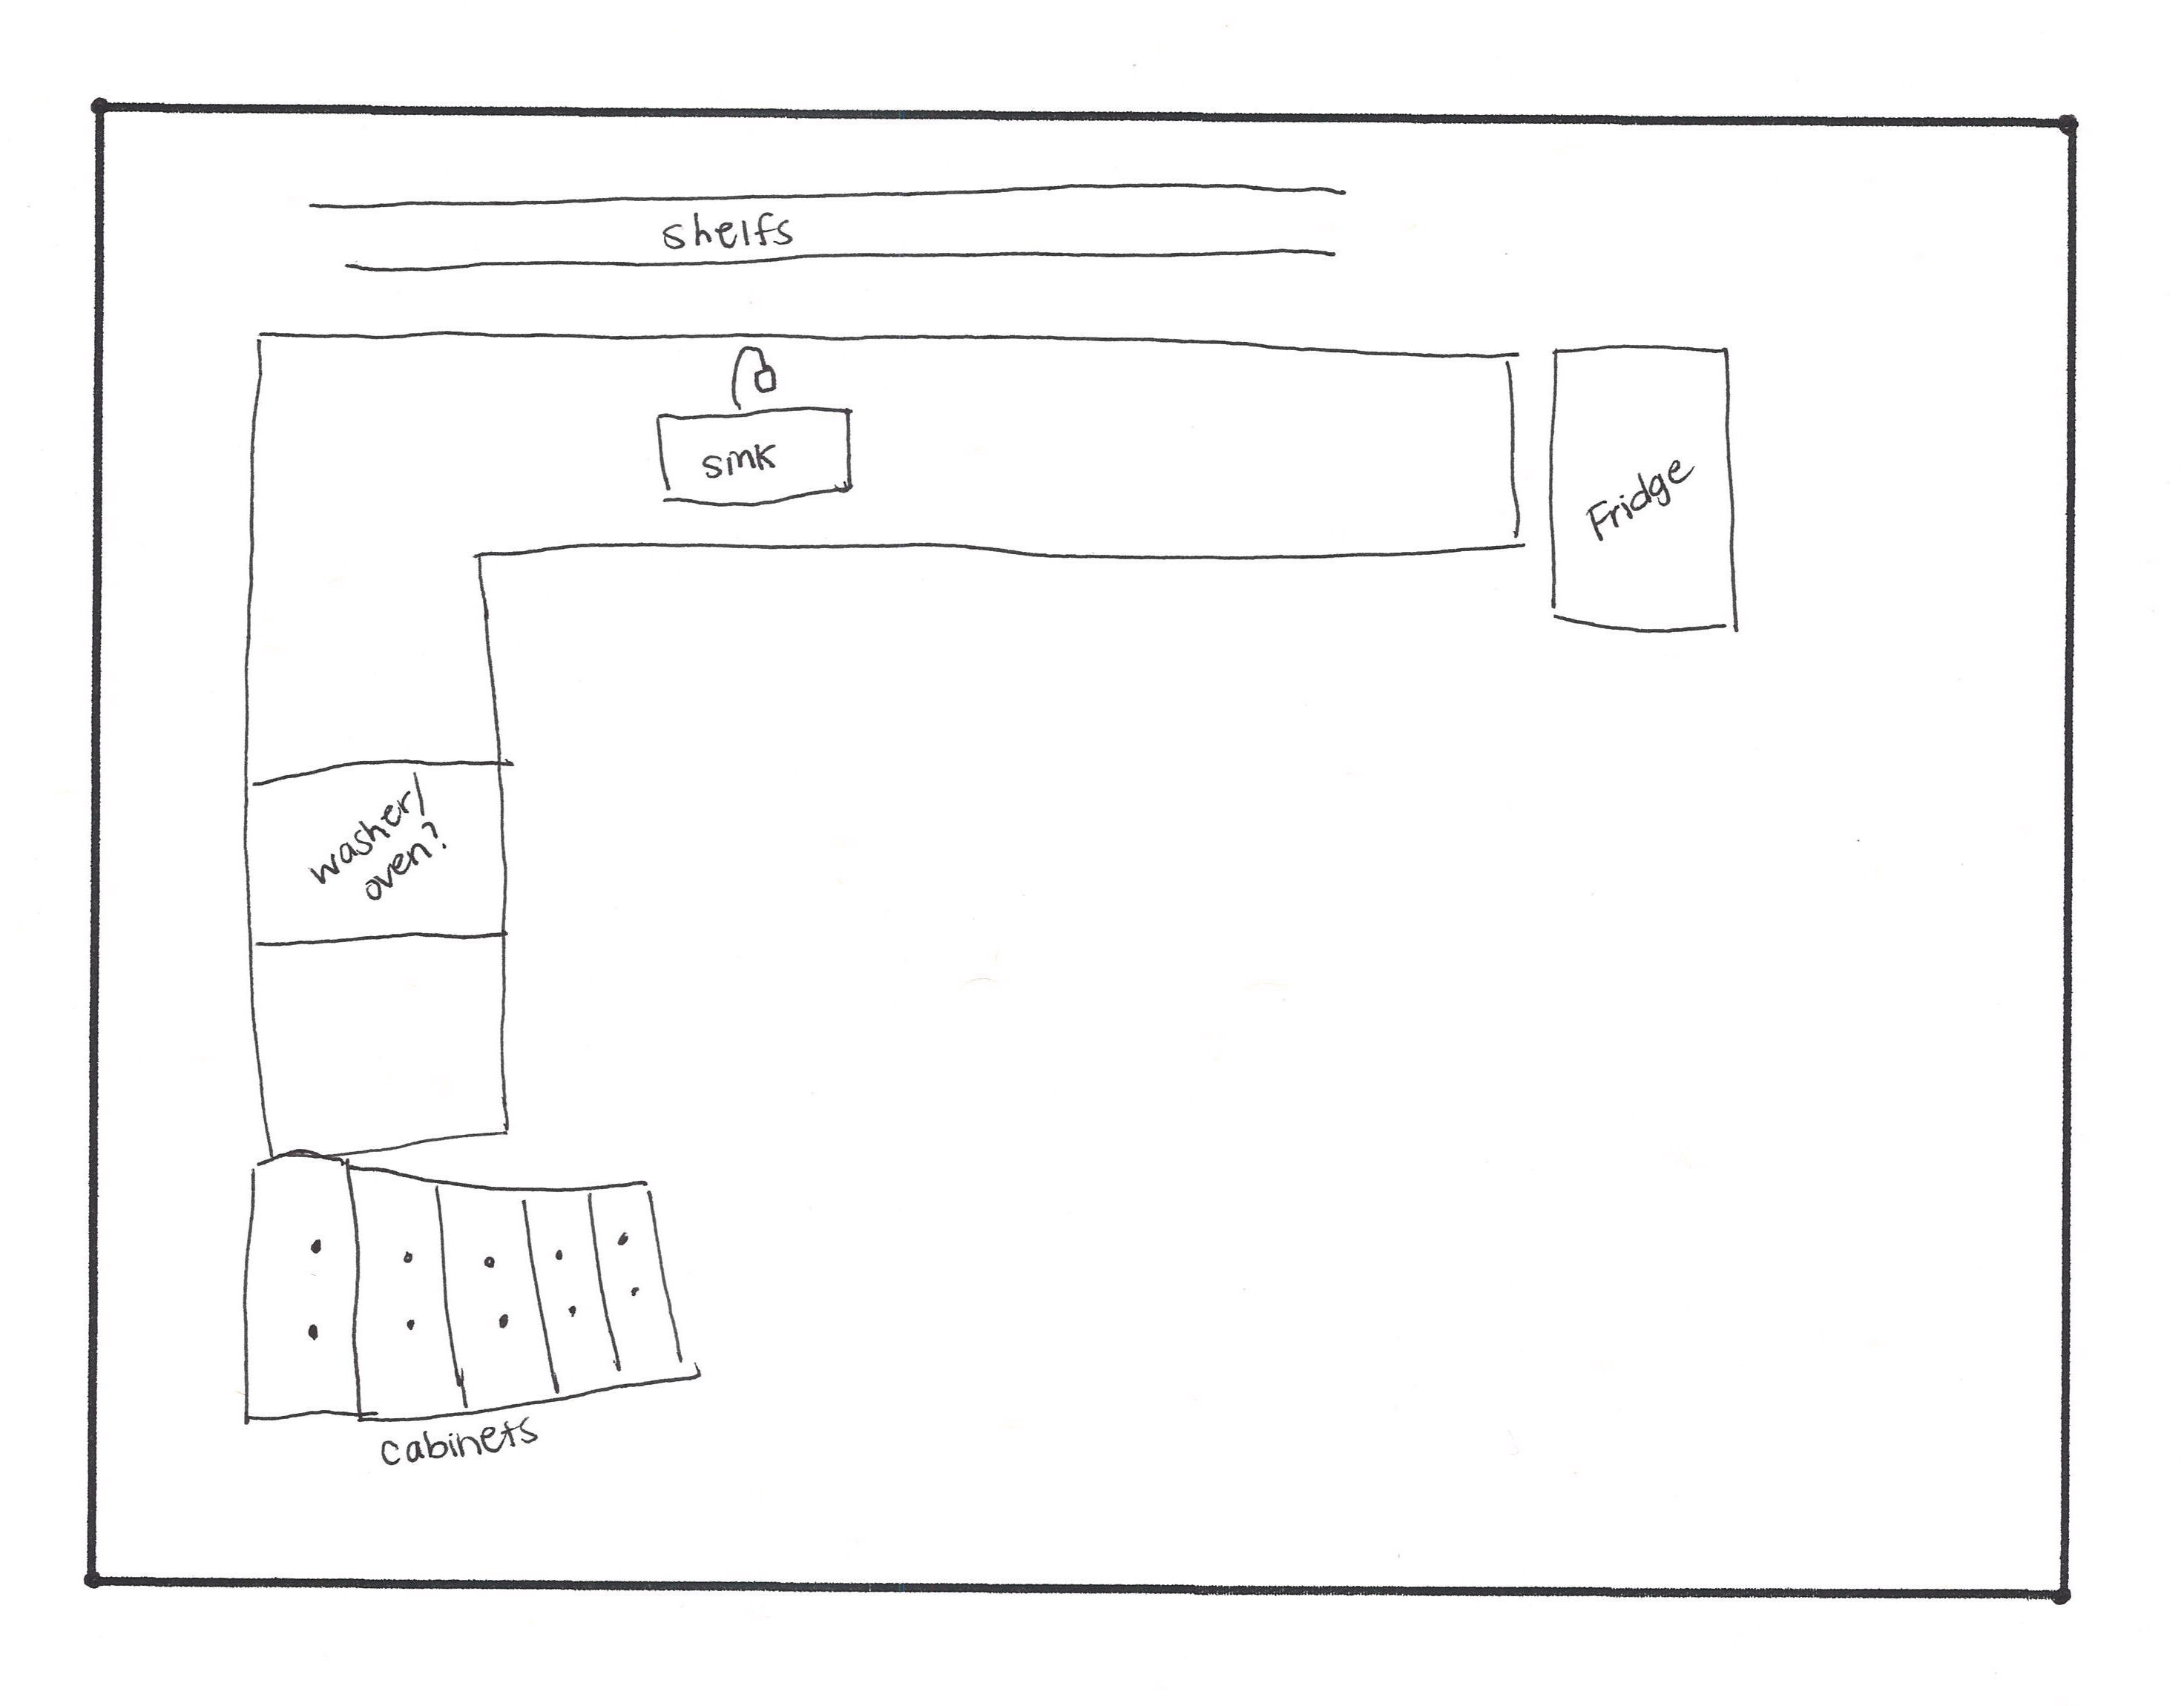 shelfs
sink
Fridge
washer/
oven?
cabinets